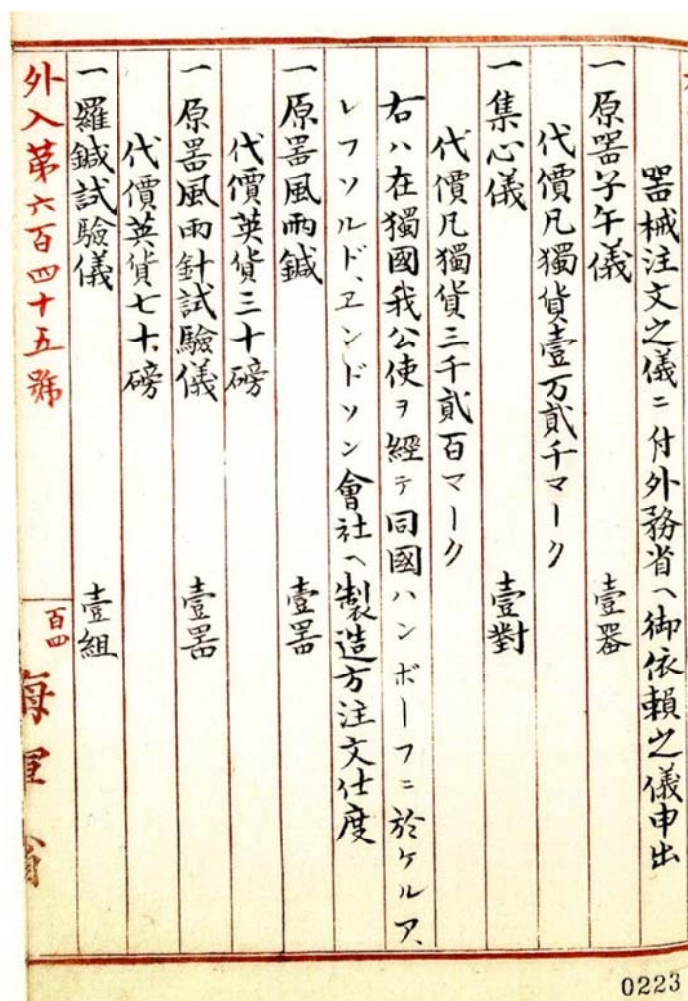 器械注文之儀ニ付外務省ヘ御依頼之儀申出
一原器子午儀 壹器
代價凡獨貨壹万貳千マーク
一集心儀 壹對
代價凡獨貨三千貳百マーク
右ハ在獨國我公使ヲ經テ同國ハンボーフニ於ケルア、
レフソルド、エンドソン會社ヘ製造方注文仕度
一原器風雨鍼 壹器
代價英貨三十磅
一原器風雨針試驗儀 壹器
代價英貨七十磅
一羅鍼試驗儀 壹組
外入第六百四十五號
百四
海軍省
0223